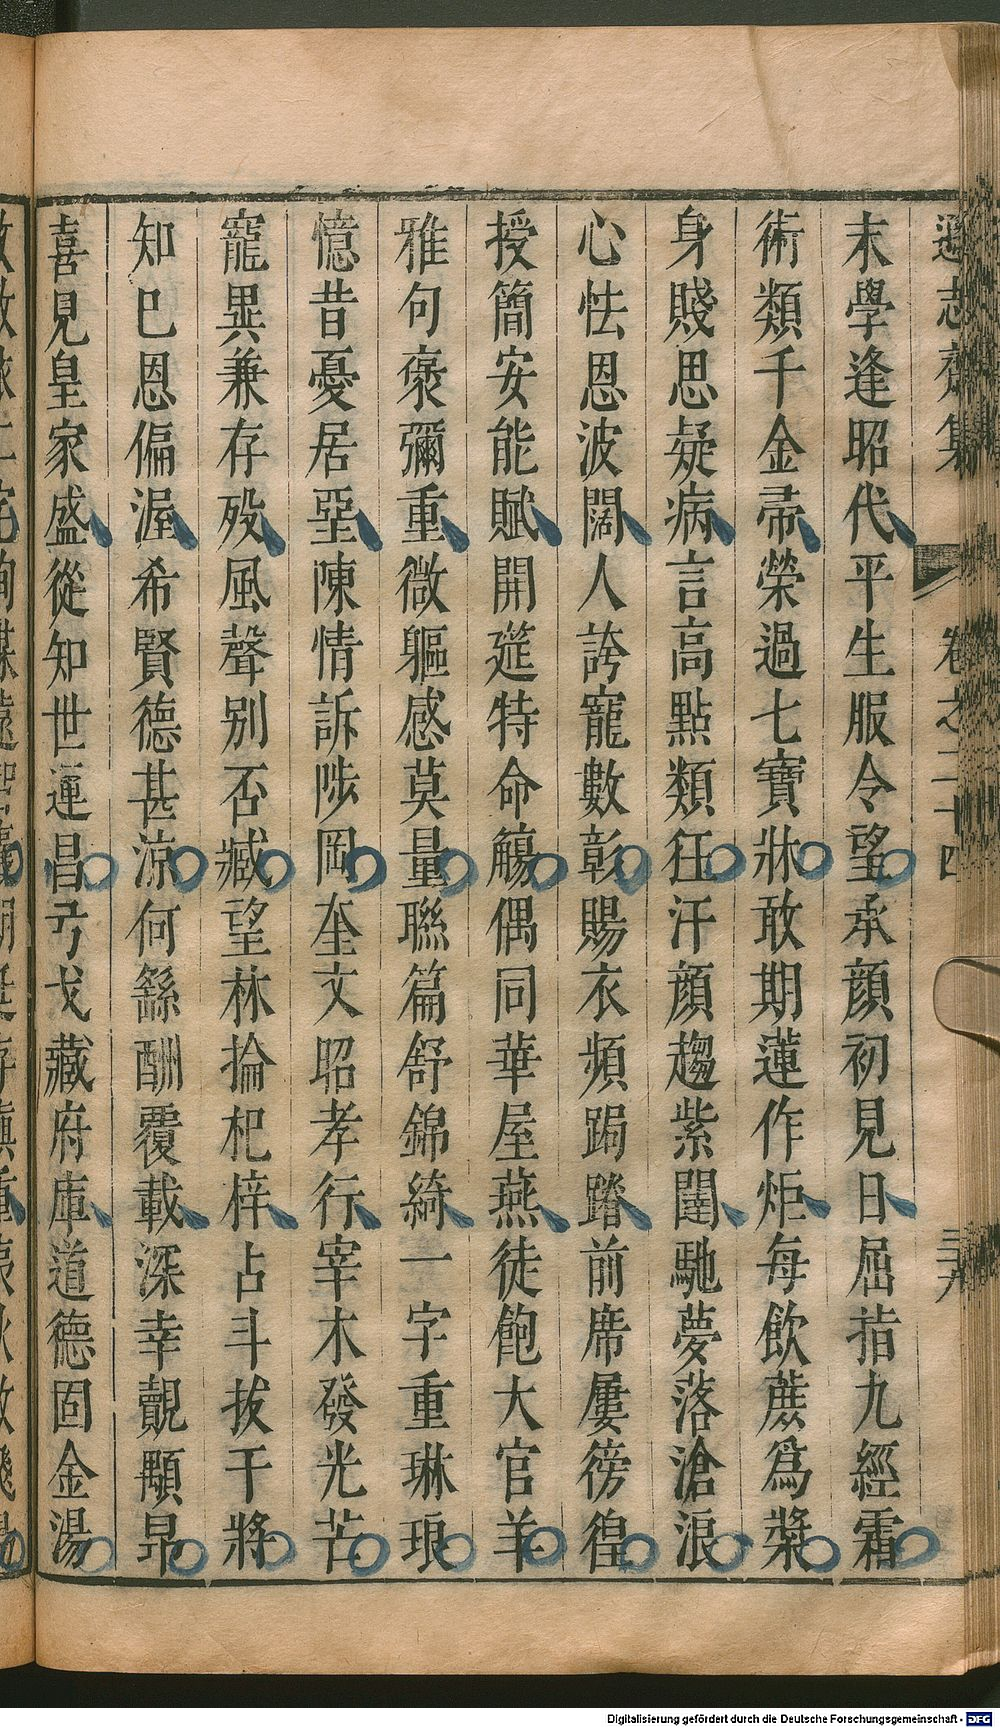 遜志齋集 卷之二十四 三十八
末學逢昭代平生服令望承顏初見日屈指九經霜
術類千金帚榮過七寶牀敢期蓮作炬每飲蔗爲漿
身賤思疑病言高點類狂汗顏趨紫闥馳夢落滄浪
心怯恩波闊人誇寵數彰賜衣頻跼蹐前席屢徬徨
授簡安能賦開筵特命觴偶同華屋燕徒飽大官羊
雅句褒彌重微軀感莫量聯篇舒錦綺一字重琳琅
憶昔憂居堊陳情訴陟岡奎文昭孝行宰木發光芒
寵異兼存歿風聲別否臧望林掄杞梓占斗拔干將
知已恩偏渥希賢德甚涼何繇酬覆載深幸覿顒昂
喜見皇家盛從知世運昌弓戈藏府庫道德固金湯
Digitalisierung gefördert durch die Deutsche Forschungsgemeinschaft - DFG